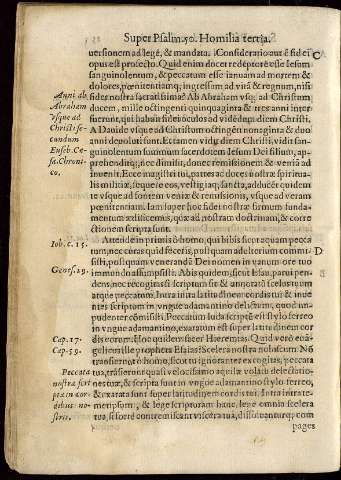 Super Psalm. 50. Homilia tertia.
uersionem ad legē, & mandata. Consideratio aut ē fidei
opus est profecto. Quid enim docet
sanguinolentum, & peccatum esse ianuam ad mortem &
dolores, pœnitentiamq; ingressam ad vitā & regnum, nisi
fides nostra sacratissima? Ab Abraham vsq; ad Christum
docem, mille octingenti quinquaginta & tres anni inter
fuerunt, qui habuit fidei oculos ad vidēdum diem Christi.
A Dauide vsque ad Christum octingēn nonaginta & duo
anni deuoluti sunt. Et tamen vidit diem Christi, vidit san-
guinolentum summum sacerdotem Iesum Dei filium, ap-
prehenditq;, nec dimisit, donec remissionem & veniā ad
inuenit. Ecce magistri tui, partes ac doces nostræ spiritua-
lis militiæ, sequere eos, vestigiaq; sancta, adducēt quidem
te vsque ad fontem veniæ & remissionis, vsque ad veram
pœnitentiam. Iam super hoc fidei nostræ firmum funda-
mentum ædificemus, quæ ad nostram doctrinam, & corre
ctionem scripta sunt.
Attende in primis ô homo, qui bibis sicut aquam pecca
tum, nec curas quid feceris, postquam adulterium commi-
sisti, postquam venerandū Dei nomen in vanum ore tuo
immundo assumpsisti. Abis quidem, sicut Esau, parui pen-
dens, nec recogitas si scriptum sit & annotatū scelus tuum
atque peccatum. Intra in ista latitudinem cordis tui & inue
nies scriptum in vngue adamantino delictum, quod im-
pudenter cōmisisti. Peccatum Iuda scriptū est stylo ferreo
in vngue adamantino, exaratum est super latitudinem cor
dis eorum. Hoc quidem sacer Hieremias. Quid verò euā-
gelicus ille propheta Esaias? Scelera nostra nobiscum. Nō
transierunt ô homo, sicut tu ignoranter excogitas, peccata
tua, trāsierunt quasi velocissimo aquilæ volatu delectatio-
nes tuæ, & scripta sunt in vngue adamantino stylo ferreo,
& exarata sunt super latitudinem cordis tui. Intra intra te-
metipsum, & lege scripturam hanc, lege omnia scelera
tua, si fortè contremiscant viscera tua, dissoluanturq; com
pages
Anni ab
Abraham
vsque ad
Christū se-
cundum
Euseb. Cæ-
sa. Chroni-
co.
Iob. c. 15.
Genes. 25.
Cap. 17.
Cap. 59.
Peccata
nostra scri
pta in cor-
dibus no-
stris.
C
D